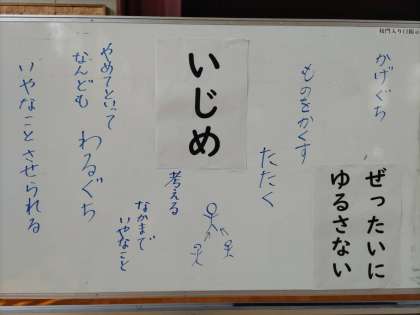 かげぐち
ものをかくす
たたく
ぜったいに
ゆるさない
いじめ
考える
なかまで
いやなこと
やめてといって
なんども
わるぐち
いやなことさせられる